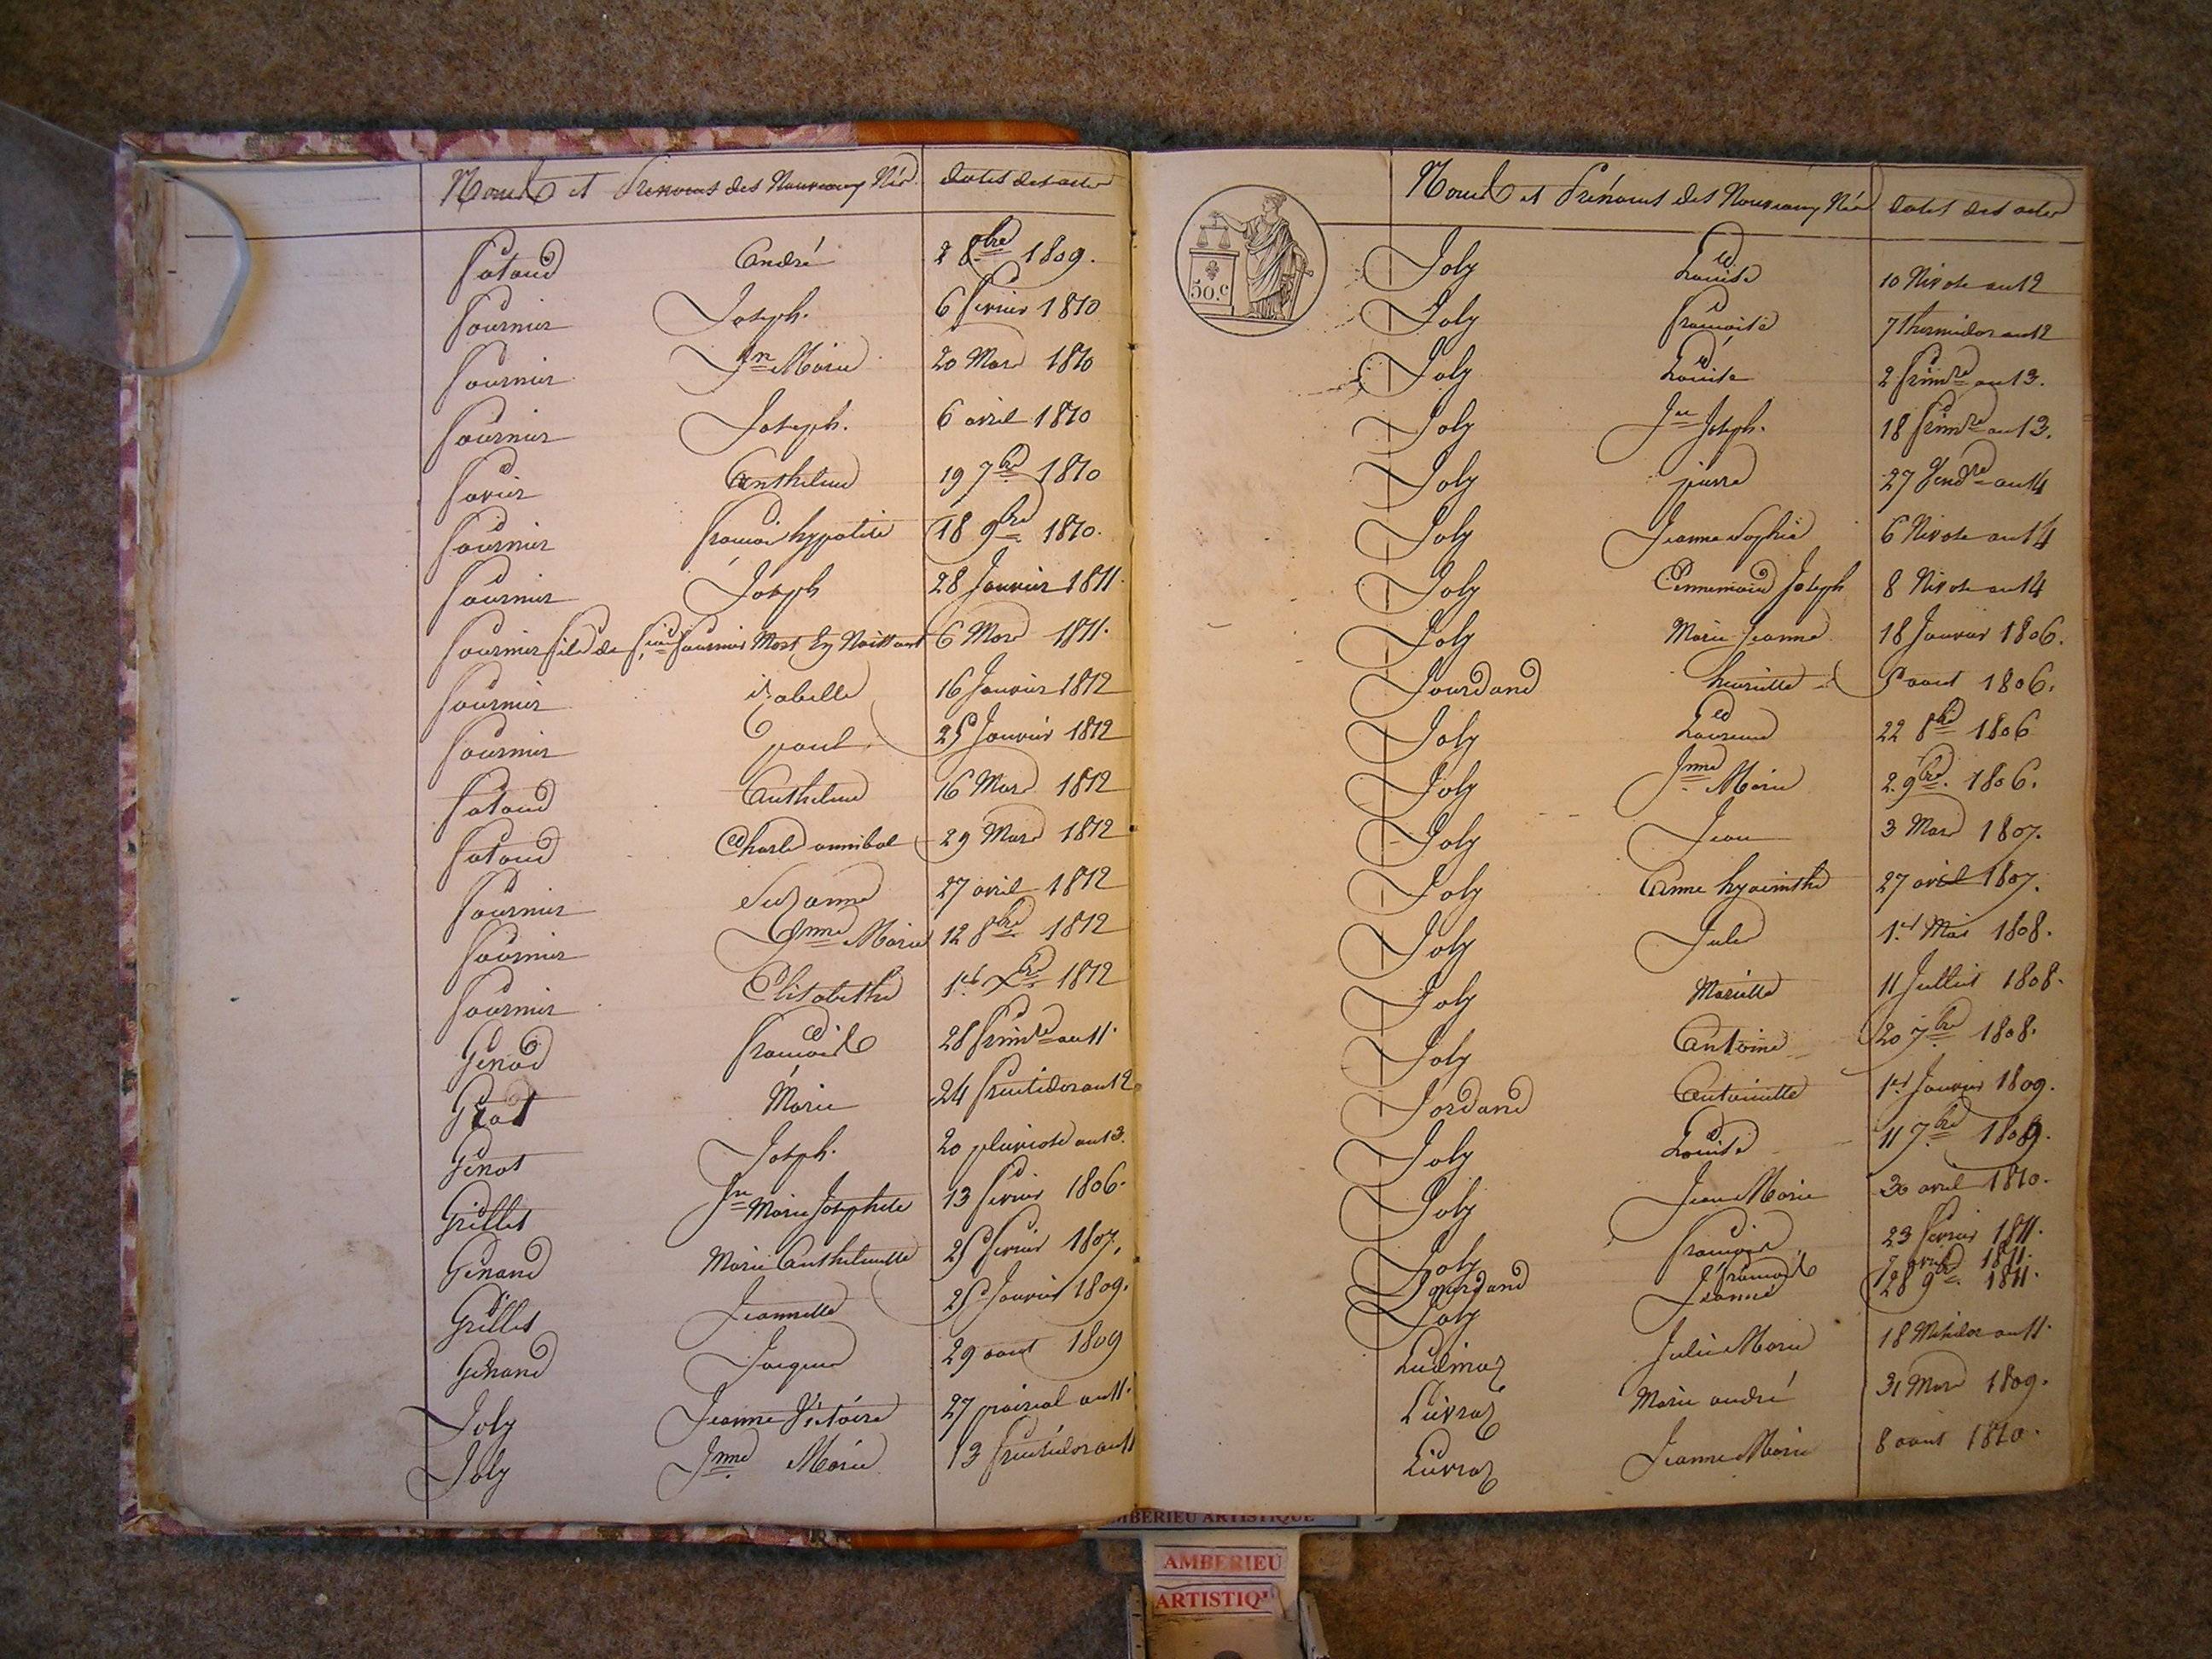 Noms et Prénoms des Nouveaux Nés dates des actes
Fataud André 2 8bre 1809.
Fournier Joseph. 6 fevrier 1810
Fournier Jn Marie 20 Mars 1810
Fournier Joseph. 6 avril 1810
Favier Anthelme 19 7bre 1810
Fournier françois hypolite 18 9bre 1810.
Fournier Joseph 28 Janvier 1811.
Fournier fils de Fournier Mort En Naissant 6 Mars 1811.
Fournier isabelle 16 Janvier 1812
Fournier paul 25 Janvier 1812
Fataud Anthelme 16 Mars 1812
Fataud Charle annibal 29 Mars 1812
Fournier Suzanne 27 avril 1812
Fournier Jnne Marie 12 8bre 1812
Fournier Elisabethe 1er Xbre 1812
Genod françoise 28 frimre an 11.
Marie 24 fructidor an 12
Genot Joseph. 20 pluviose an 13.
Grillet Jn Marie Josephete 13 fevrier 1806.
Genand Marie Anthelmette 25 fevrier 1807.
Grillet Jeannette 25 Janvier 1809.
Genand Jacques 29 aout 1809
Joly Jeanne Victoire 27 prairial an 11.
Joly Jnne Marie 13 fructidor an 11
Noms et Prénoms des Nouveaux Nés dates des actes
50.c
Joly Louise 10 Nivose an 12
Joly françoise 7 thermidor an 12
Joly Louise 2 frimre an 13.
Joly Jn Joseph. 18 frimre an 13.
Joly pierre 27 Vendre an 14
Joly Jeanne Sophie 6 Nivose an 14
Joly Ennemond Joseph 8 Nivose an 14
Joly Marie Jeanne 18 Janvier 1806.
Jourdand henriette 5 aout 1806.
Joly Laurence 22 8bre 1806
Joly Jnne Marie 2 9bre 1806.
Joly Jean 3 Mars 1807.
Joly Anne hyacinthe 27 avril 1807.
Joly Jules 1er Mai 1808.
Joly Mariette 11 Juillet 1808.
Joly Antoine 20 7bre 1808.
Jordand Antoinette 1er Janvier 1809.
Joly Louise 11 7bre 1809.
Joly Jean Marie 30 avril 1810.
Joly françois 23 fevrier 1811.
Jourdand françoise 7 avril 1811.
Joly Jeanne 28 9bre 1811.
Ludinaz Julie Marie 18 Messidor an 11.
Livraz Marie andré 31 Mars 1809.
Livraz Jeanne Marie 8 aout 1810.
AMBERIEU ARTISTIQUE
AMBERIEU
ARTISTIQ